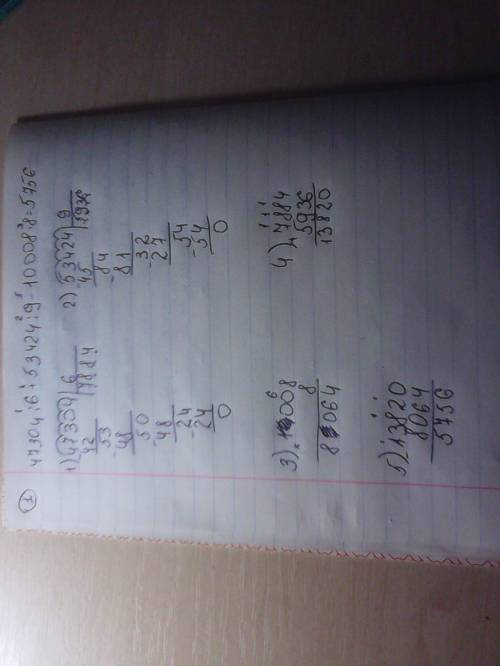 1
47304:6+53424:9-1008·8=5756
1) 47304 | 6
42 | 7884
53
48
50
48
24
24
0
2) 53424 | 9
45 | 5936
84
81
32
27
54
54
0
3) × 1008
8
8064
4) + 7884
5936
13820
5) - 13820
8064
5756